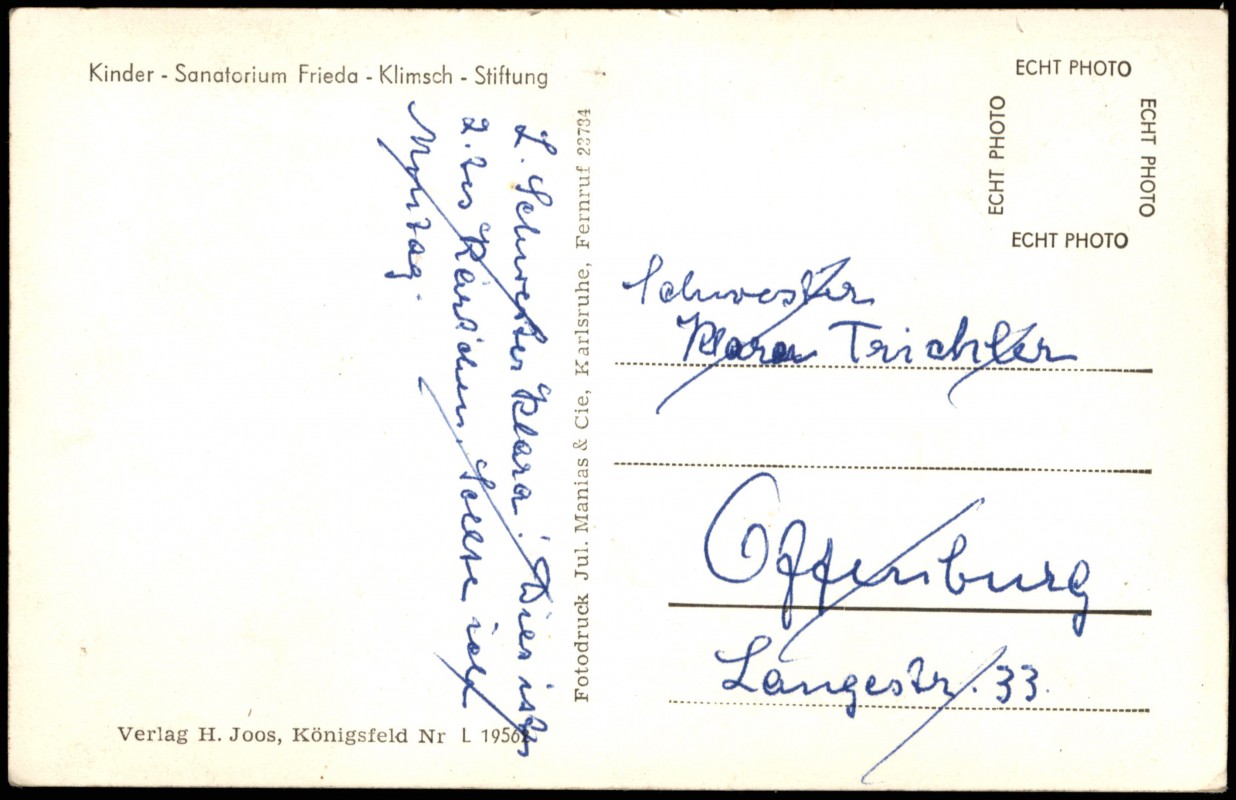 Kinder - Sanatorium Frieda - Klimsch - Stiftung
L. Schwester Klara! Dies ist das
2. tes Kärtchen, solltse ich
Montag.
Verlag H. Joos, Königsfeld Nr L 19562
Fotodruck Jul. Manias & Cie, Karlsruhe, Fernruf 23734
ECHT PHOTO
ECHT PHOTO
ECHT PHOTO
ECHT PHOTO
Schwester
Klara Trichtler
Offenburg
Langestr. 33.